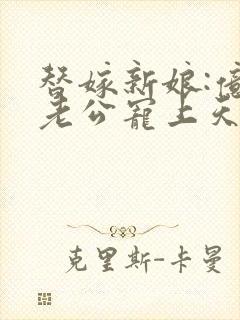 替嫁新娘:億
老公寵上天
克里斯-卡曼